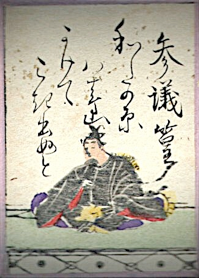 参議篁
和たの原
八十嶋
かけて
こき出ぬと